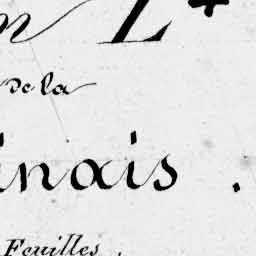 de la
inais.
Feuilles.